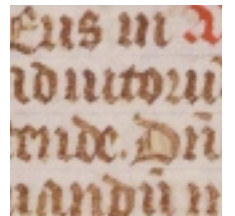 Eus in A
diutoriu
tende. Dn̄
uandū m